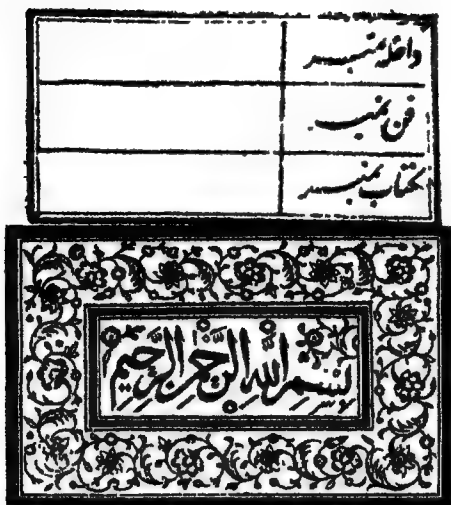 داخله نمبر
فن نمبر
کتاب نمبر
بسم الله الرحمن الرحيم